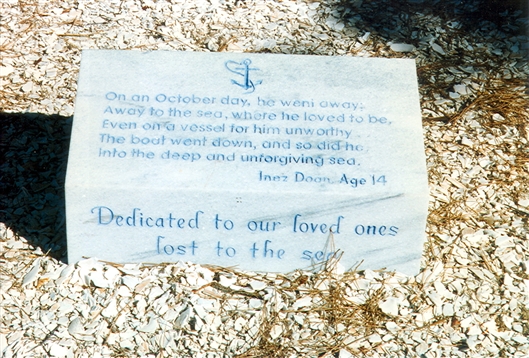 On an October day, he went away;
Away to the sea, where he loved to be,
Even on a vessel for him unworthy.
The boat went down, and so did he
Into the deep and unforgiving sea.
Inez Doan, Age 14
Dedicated to our loved ones
lost to the sea